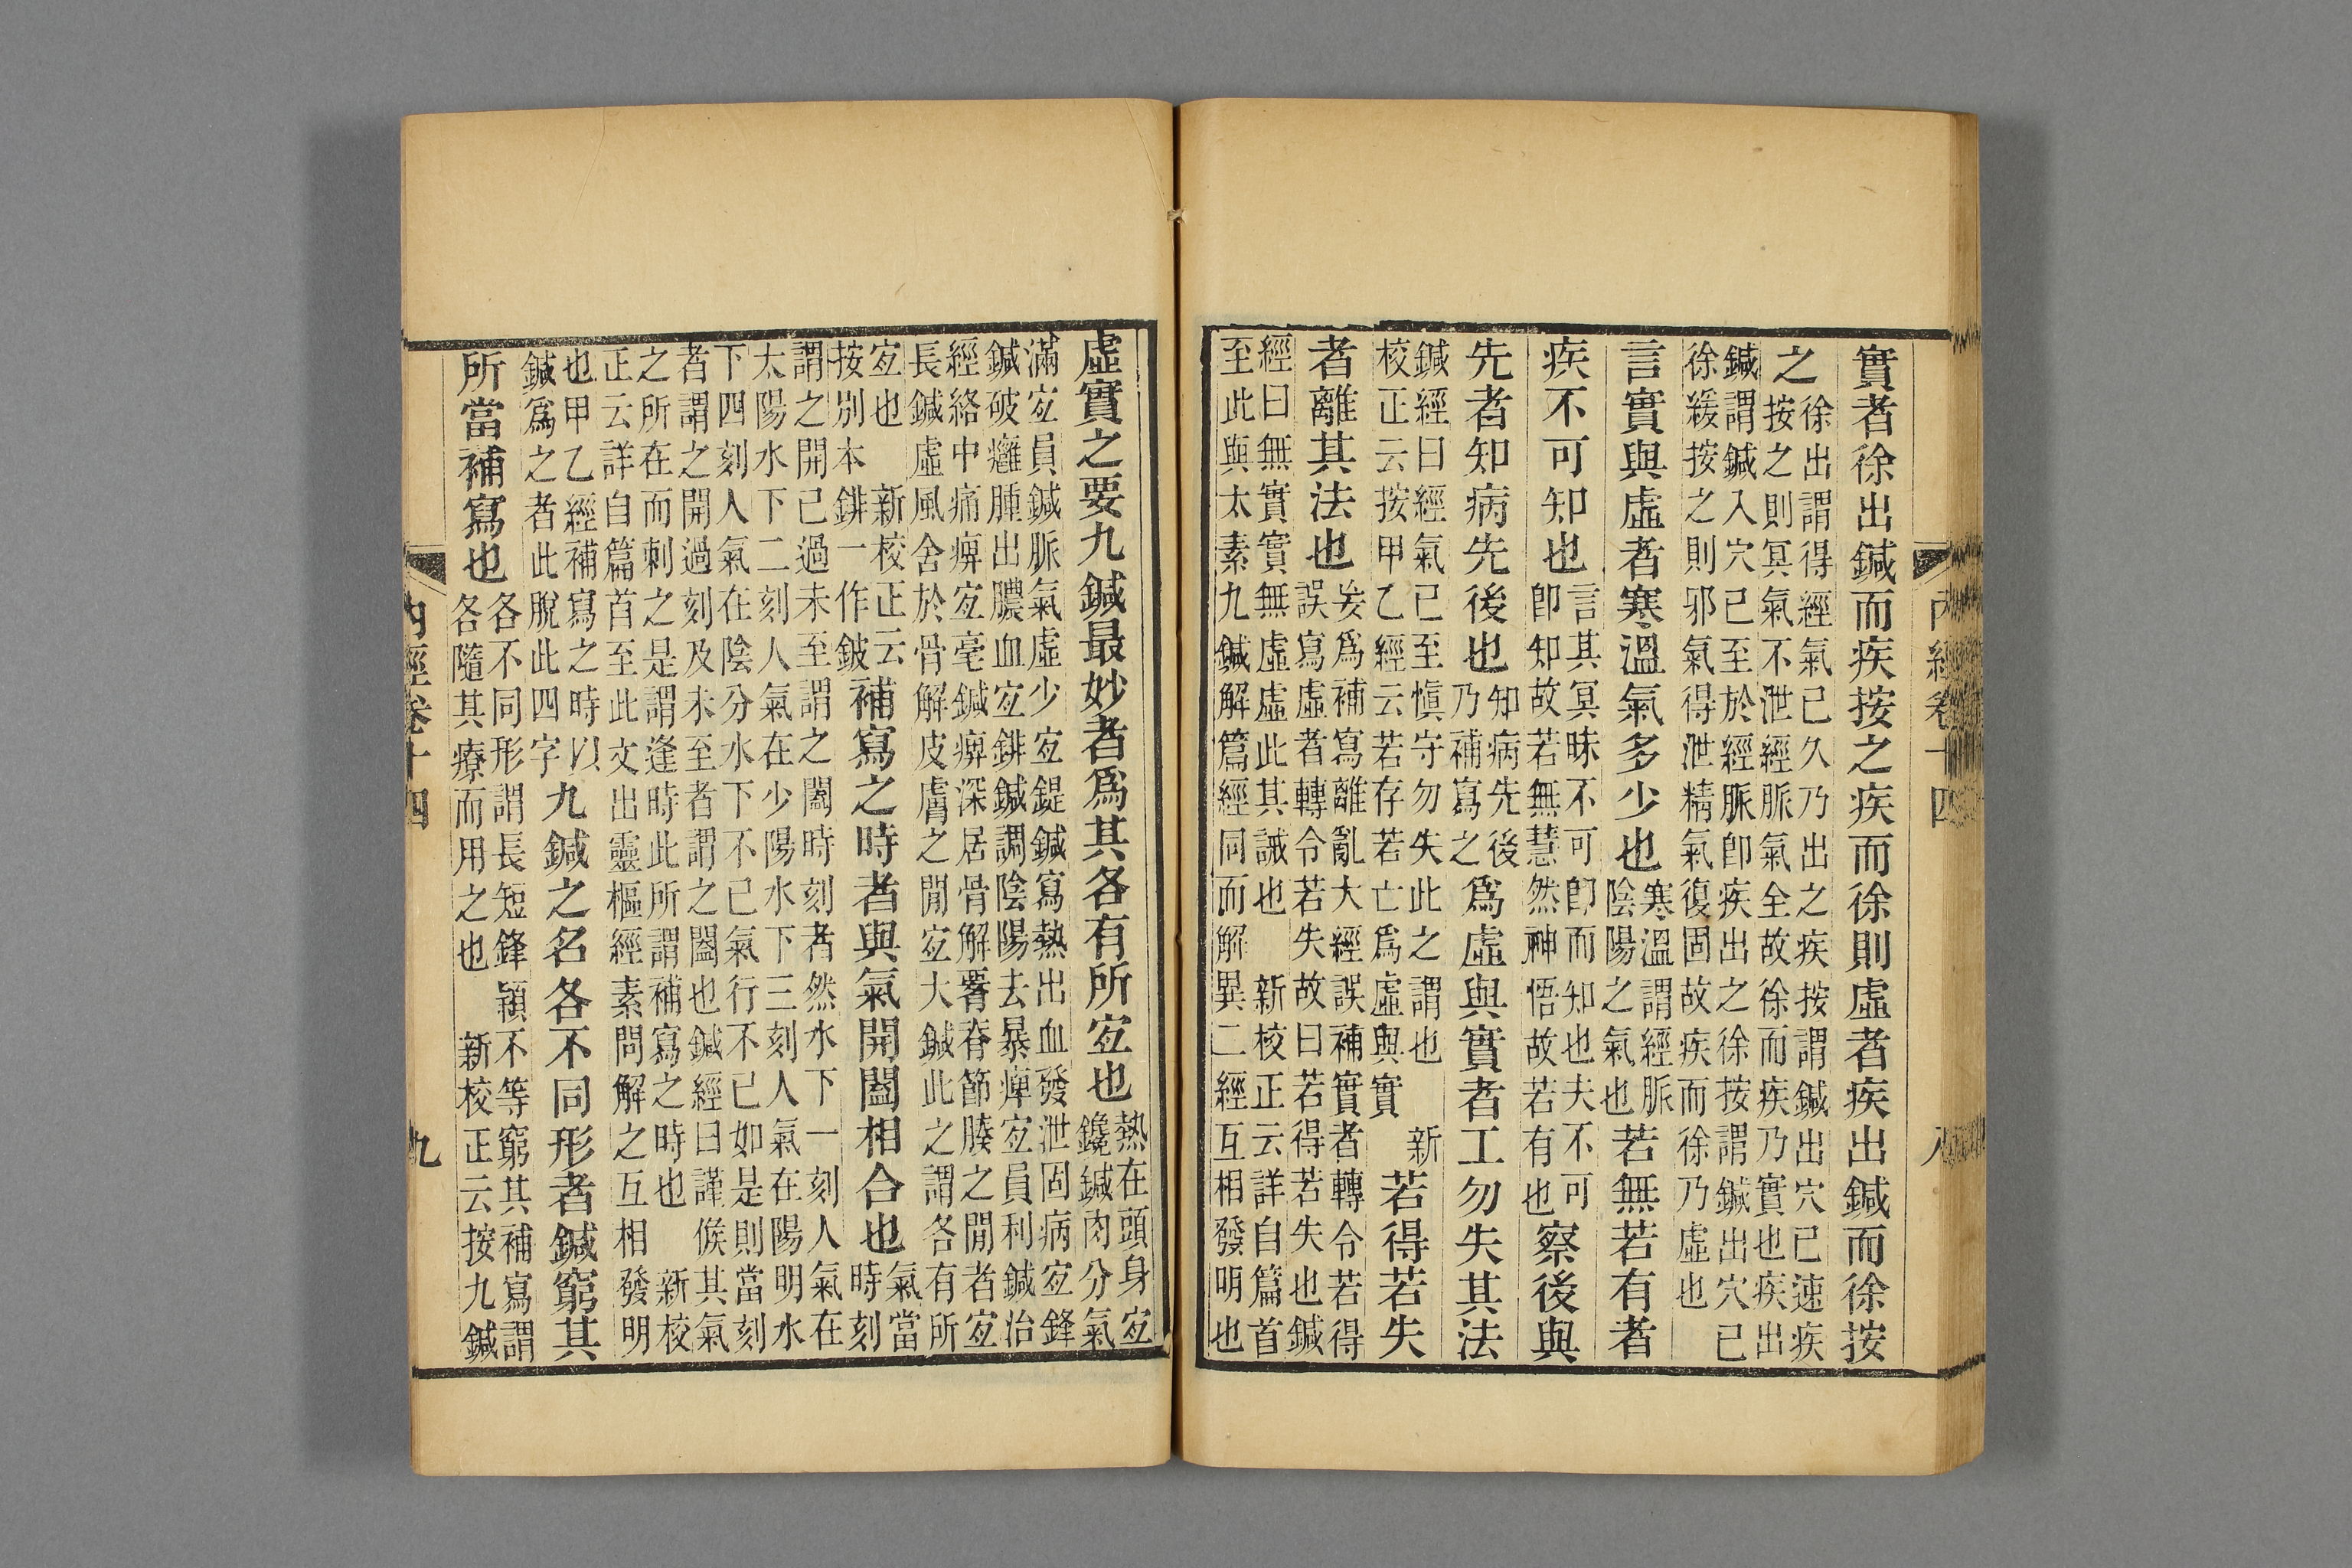 內經卷十四 八
實者徐出鍼而疾按之疾而徐則虛者疾出鍼而徐按
之
徐出謂得經氣已久乃出之疾按謂鍼出穴已速疾
按之則冥氣不泄經脈氣全故徐而疾乃實也疾出
鍼謂鍼入穴已至於經脈卽疾出之徐按謂鍼出穴已
徐緩按之則邪氣得泄精氣復固故疾而徐乃虛也
言實與虛者寒溫氣多少也
寒溫謂經脈
陰陽之氣也
若無若有者
疾不可知也
言其冥昧不可卽而知也夫不可
卽知故若無慧然神悟故若有也
察後與
先者知病先後也
知病先後
乃補寫之
爲虛與實者工勿失其法
鍼經曰經氣已至慎守勿失此之謂也　新
校正云按甲乙經云若存若亡爲虛與實
若得若失
者離其法也
妄爲補寫離亂大經誤補實者轉令若得
誤寫虛者轉令若失故曰若得若失也鍼
經曰無實實無虛虛此其誡也　新校正云詳自篇首
至此與太素九鍼解篇經同而解異二經互相發明也
虛實之要九鍼最妙者爲其各有所宐也
熱在頭身宐
鑱鍼肉分氣
滿宐員鍼脈氣虛少宐鍉鍼寫熱出血發泄固病宐鋒
鍼破癰腫出膿血宐錍鍼調陰陽去暴痺宐員利鍼治
經絡中痛痺宐毫鍼痺深居骨解腰脊節腠之閒者宐
長鍼虛風舍於骨解皮膚之閒宐大鍼此之謂各有所
宐也　新校正云
按別本錍一作鈹
補寫之時者與氣開闔相合也
氣當
時刻
謂之開已過未至謂之闔時刻者然水下一刻人氣在
太陽水下二刻人氣在少陽水下三刻人氣在陽明水
下四刻人氣在陰分水下不已氣行不已如是則當刻
者謂之開過刻及未至者謂之闔也鍼經曰謹候其氣
之所在而刺之是謂逢時此所謂補寫之時也　新校
正云詳自篇首至此文出靈樞經素問解之互相發明
也甲乙經補寫之時以
鍼爲之者此脫此四字
九鍼之名各不同形者鍼窮其
所當補寫也
各不同形謂長短鋒穎不等窮其補寫謂
各隨其療而用之也　新校正云按九鍼
內經卷十四 九